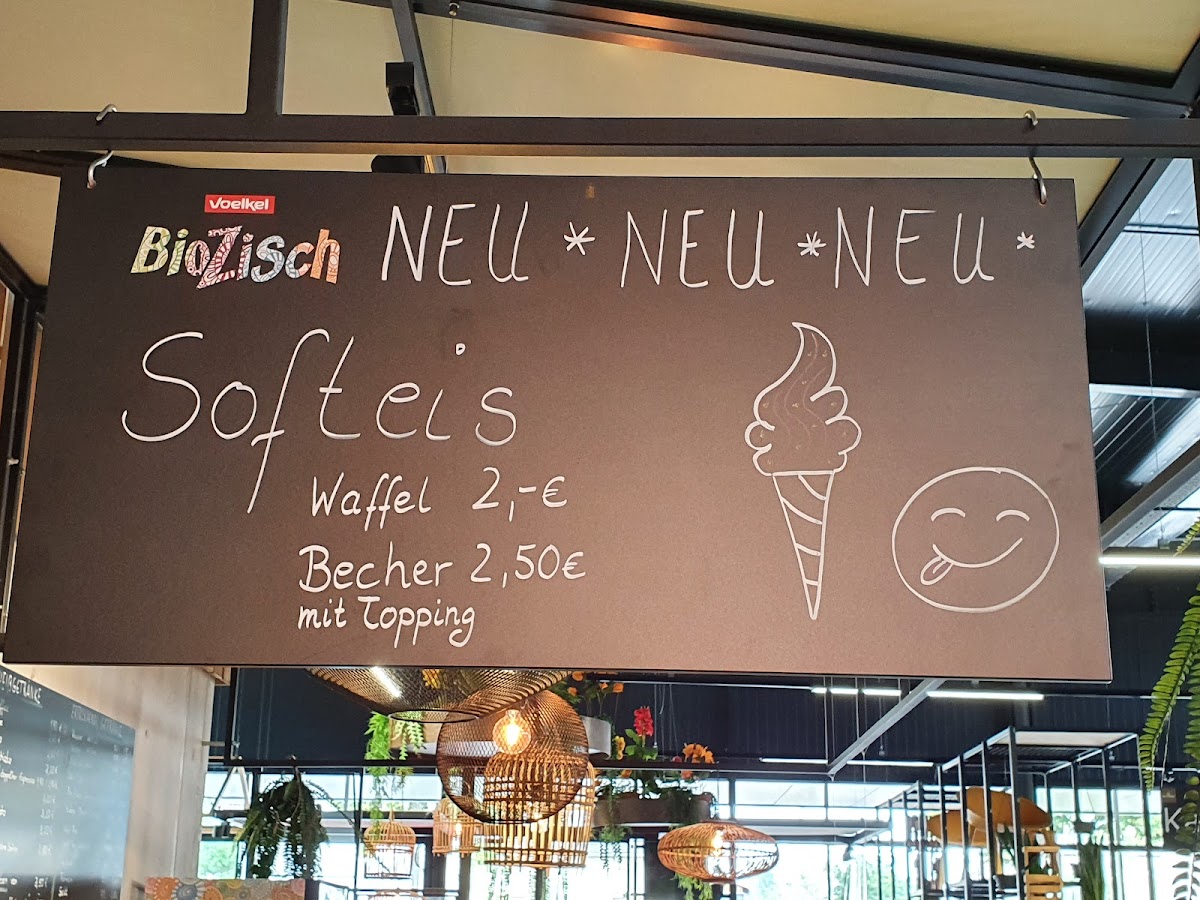 Voelkel
BioZisch NEU * NEU * NEU *
Softeis
Waffel 2,-€
Becher 2,50€
mit Topping